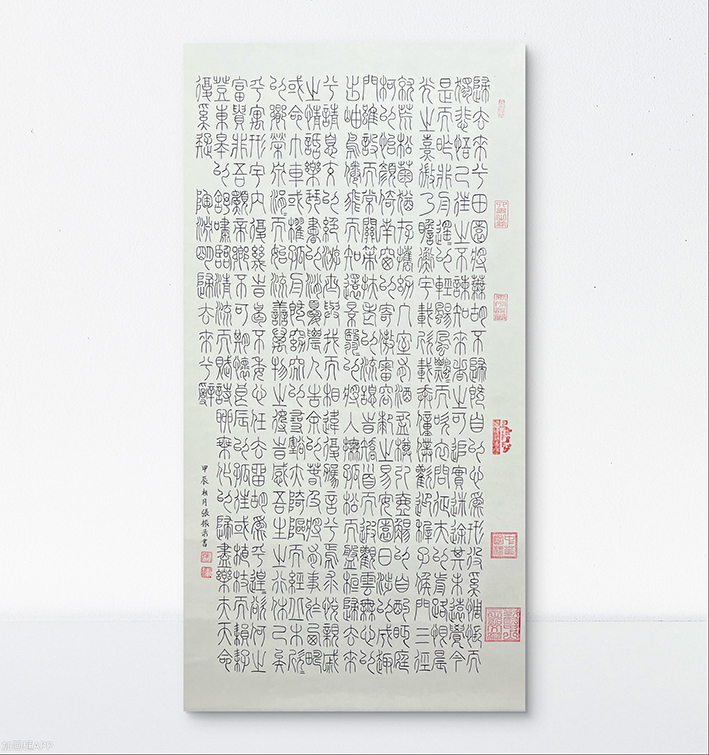 歸去來兮田園將蕪胡不歸既自以心爲形役奚惆悵而
獨悲悟已往之不諫知來者之可追實迷途其未遠覺今
是而昨非舟遙遙以輕颺風飄飄而吹衣問征夫以前路恨晨
光之熹微乃瞻衡宇載欣載奔僮僕歡迎稚子候門三徑
就荒松菊猶存攜幼入室有酒盈樽引壺觴以自酌眄庭
柯以怡顏倚南窗以寄傲審容膝之易安園日涉以成趣
門雖設而常關策扶老以流憩時矯首而遐觀雲無心以
出岫鳥倦飛而知還景翳翳以將入撫孤松而盤桓歸去來
兮請息交以絕游世與我而相違復駕言兮焉求悅親戚
之情話樂琴書以消憂農人告余以春及將有事於西疇
或命巾車或棹孤舟既窈窕以尋壑亦崎嶇而經丘木欣欣
以向榮泉涓涓而始流善萬物之得時感吾生之行休已矣
乎寓形宇內復幾時曷不委心任去留胡爲乎遑遑欲何之
富貴非吾願帝鄉不可期懷良辰以孤往或植杖而耘耔
登東皋以舒嘯臨清流而賦詩聊乘化以歸盡樂夫天命
復奚疑 陶淵明歸去來兮辭
甲辰秋月張振書